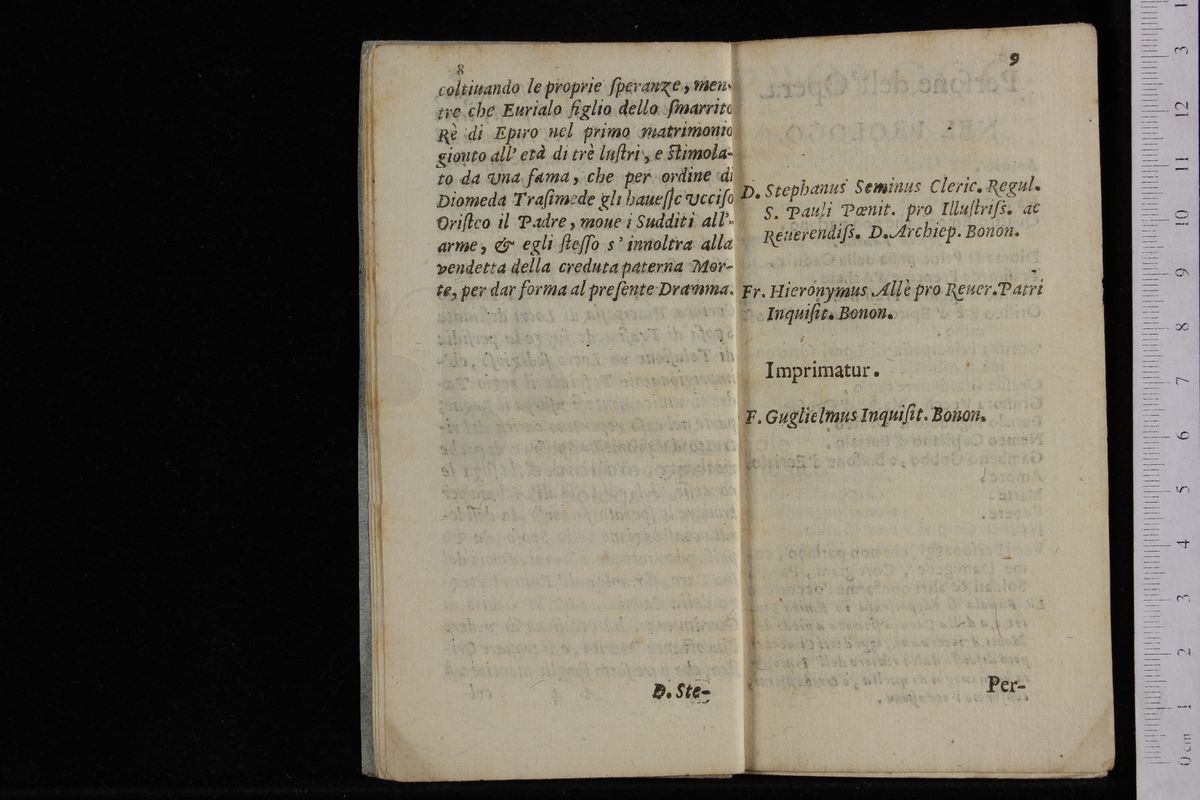 8
coltiuando le proprie ſperanze, men-
tre che Eurialo figlio dello ſmarrito
Rè di Epiro nel primo matrimonio
gionto all' età di trè luſtri, e ſtimola-
to da vna fama, che per ordine di
Diomeda Traſimede gli haueſſe vcciſo
Oriſteo il Padre, moue i Sudditi all'-
arme, & egli ſteſſo s' innoltra alla
vendetta della creduta paterna Mor-
te, per dar forma al preſente Dramma.
D. Ste-
9
D. Stephanus Seminus Cleric. Regul.
S. Pauli Pœnit. pro Illuſtriſs. ac
Reuerendiſs. D. Archiep. Bonon.
Fr. Hieronymus Allè pro Reuer. Patri
Inquiſit. Bonon.
Imprimatur.
F. Guglielmus Inquiſit. Bonon.
Per-
0 cm 1 2 3 4 5 6 7 8 9 10 11 12 13